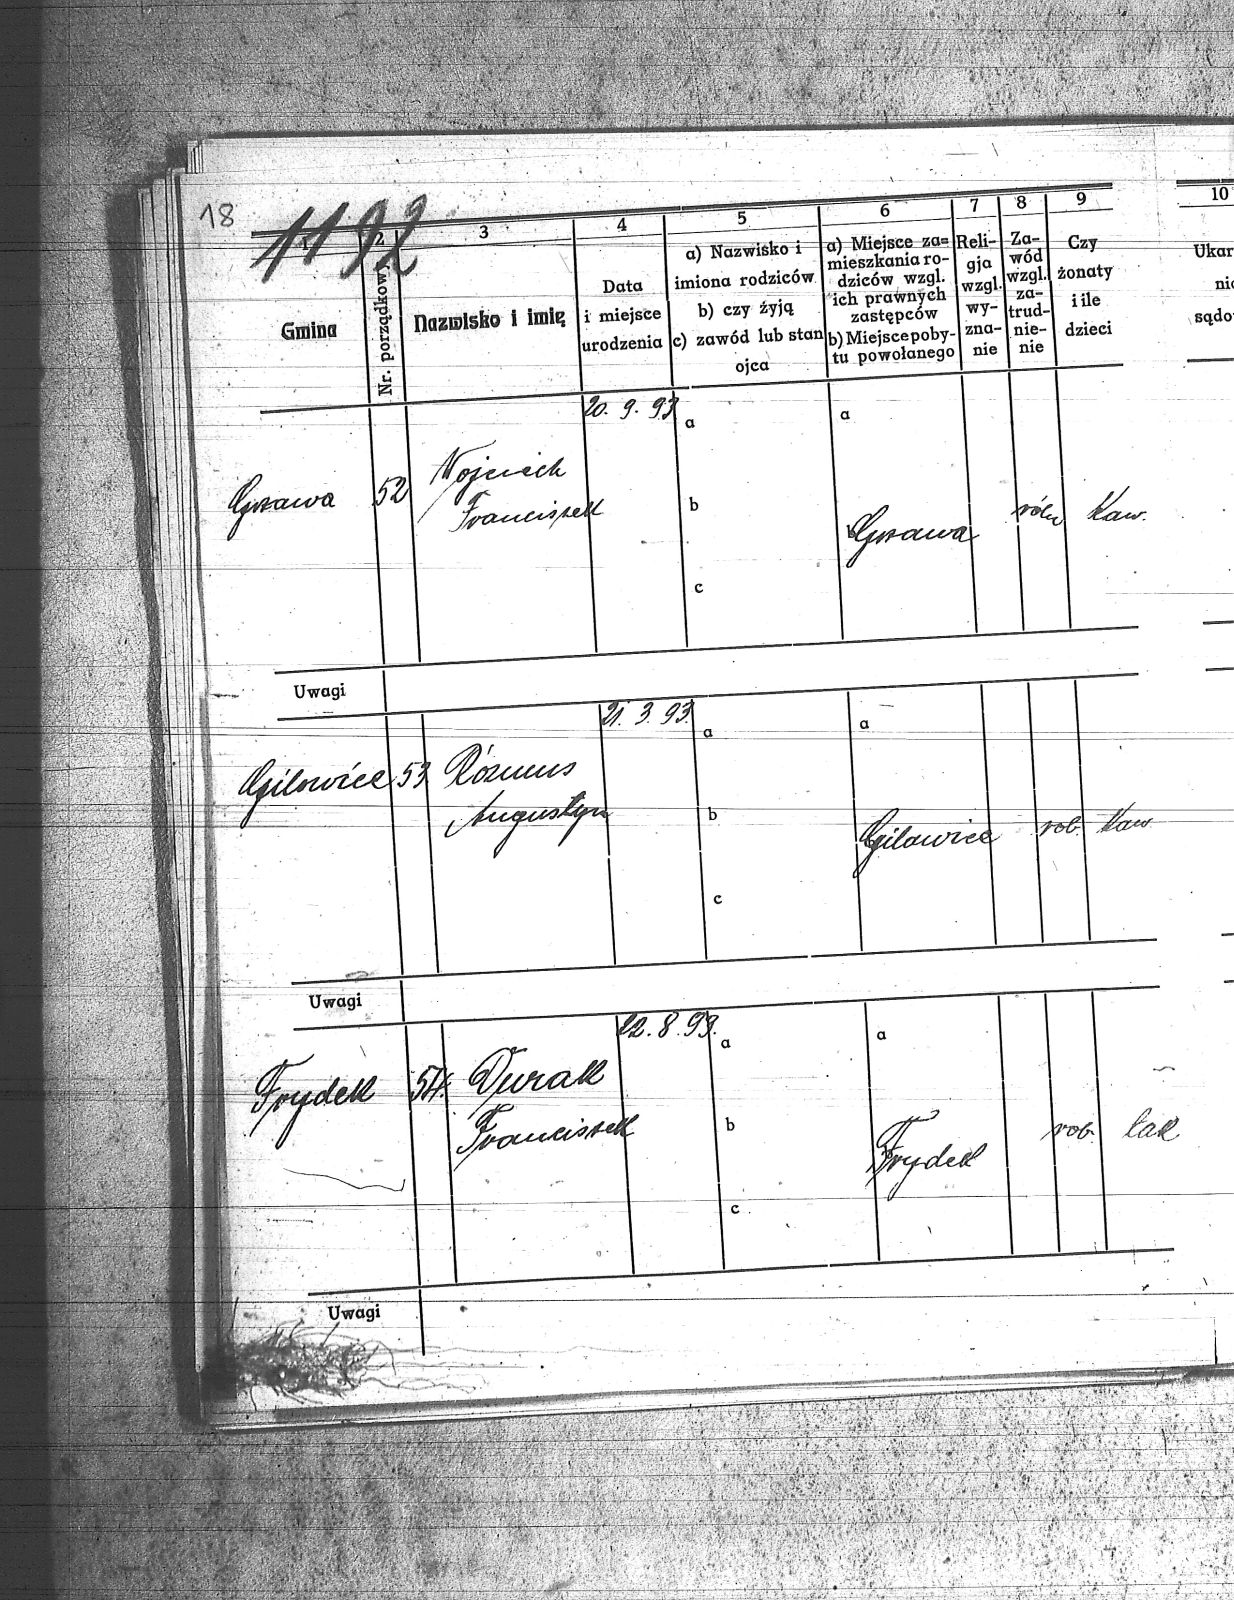 18
1192
1
2
3
4
5
6
7
8
9
10
Gmina
Nr. porządkowy
Nazwisko i imię
Data
i miejsce
urodzenia
a) Nazwisko i
imiona rodziców
b) czy żyją
c) zawód lub stan
ojca
a) Miejsce za=
mieszkania ro-
dziców wzgl.
ich prawnych
zastępców
b) Miejsce poby-
tu powołanego
Reli-
gja
wzgl.
wy-
zna-
nie
Za-
wód
wzgl.
za-
trud-
nie-
nie
Czy
żonaty
i ile
dzieci
Ukar
nie
sądo
20. 9. 93
a
a
Grzawa 52 Wojciech
Franciszek
b
Grzawa
róln
Kaw.
c
Uwagi
21. 3. 93.
a
a
Gilowice 53
Augustyn
b
Gilowice
rob.
Kaw
c
Uwagi
22. 8. 93.
a
a
Frydek 54.
Franciszek
b
Frydek
rob.
c
Uwagi